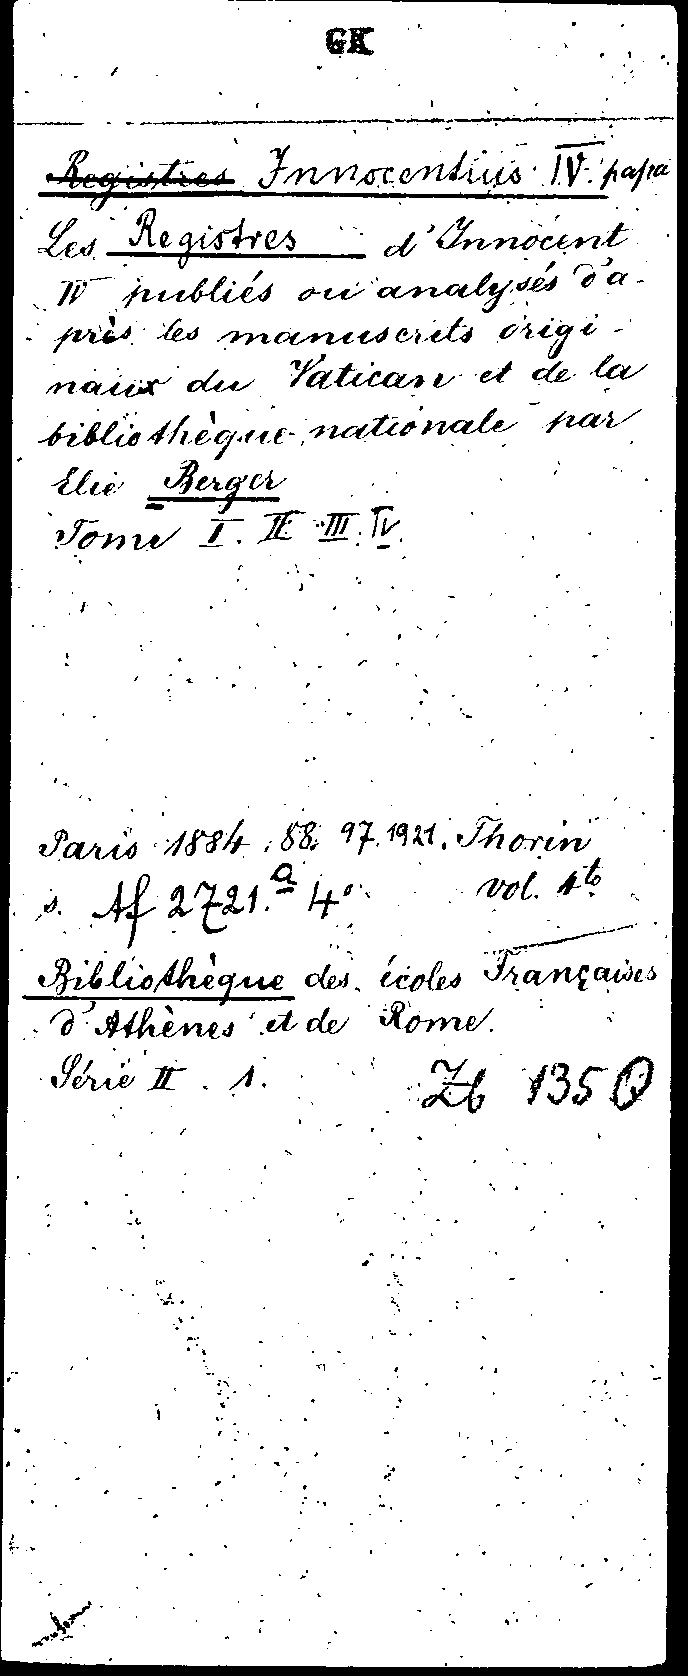 GK
Registres Innocentius IV. papa
Les Registres d'Innocent
IV publiés ou analysés d'a-
près les manuscrits origi-
naux du Vatican et de la
bibliothèque nationale par
Elie Berger
Tome I. II. III. IV.
Paris 1884. 88. 97. 1921. Thorin
s. Af 2721.a 4° vol. 4to
Bibliothèque des écoles Françaises
d'Athènes et de Rome.
Série II. 1. Zb 135 Q